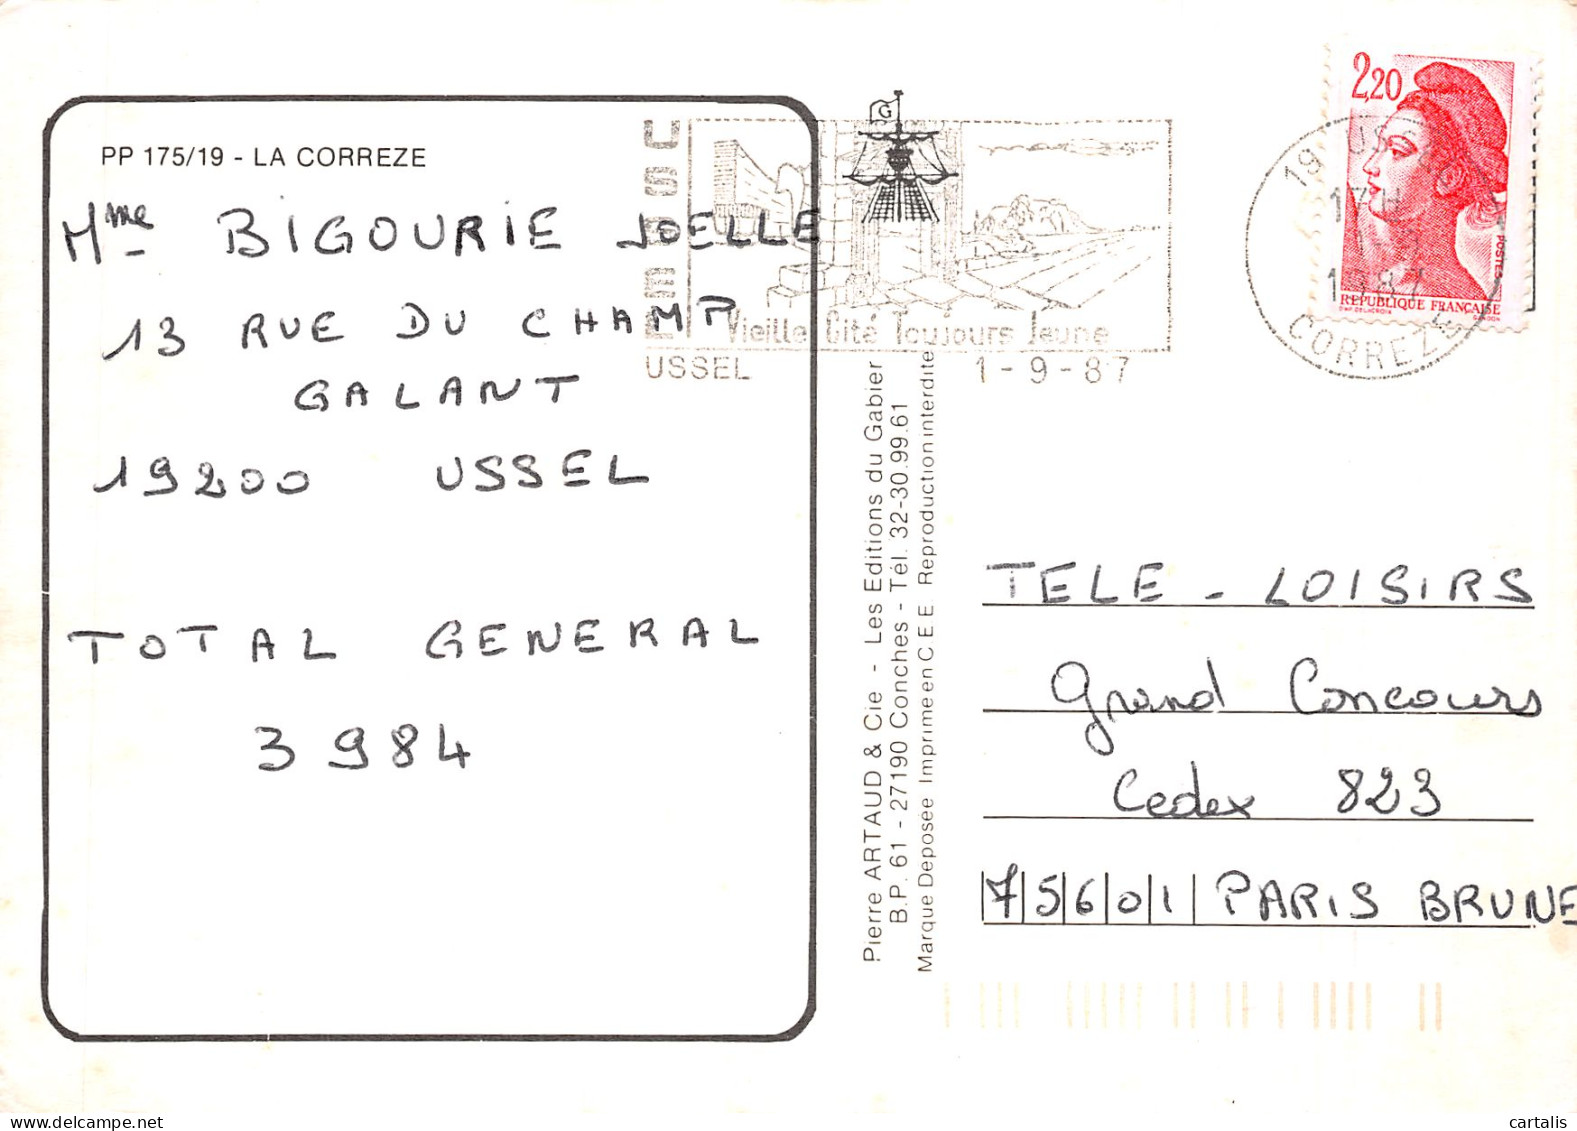 PP 175/19 - LA CORREZE
Mme BIGOURIE JOELLE
13 RUE DU CHAMP
GALANT
19200 USSEL
TOTAL GENERAL
3984
USSEL
G
Vieille Cité Toujours Jeune
USSEL
1-9-87
2,20
REPUBLIQUE FRANÇAISE
POSTES
D'AP. DELACROIX
GANDON
19 USSEL
17H
1-9
1987
CORREZE
Pierre ARTAUD & Cie - Les Editions du Gabier
B.P. 61 - 27190 Conches - Tél. 32-30.99.61
Marque Deposée Imprimé en C E E Reproduction interdite
TELE - LOISIRS
Grand Concours
Cedex 823
75601 PARIS BRUNE
cartalis